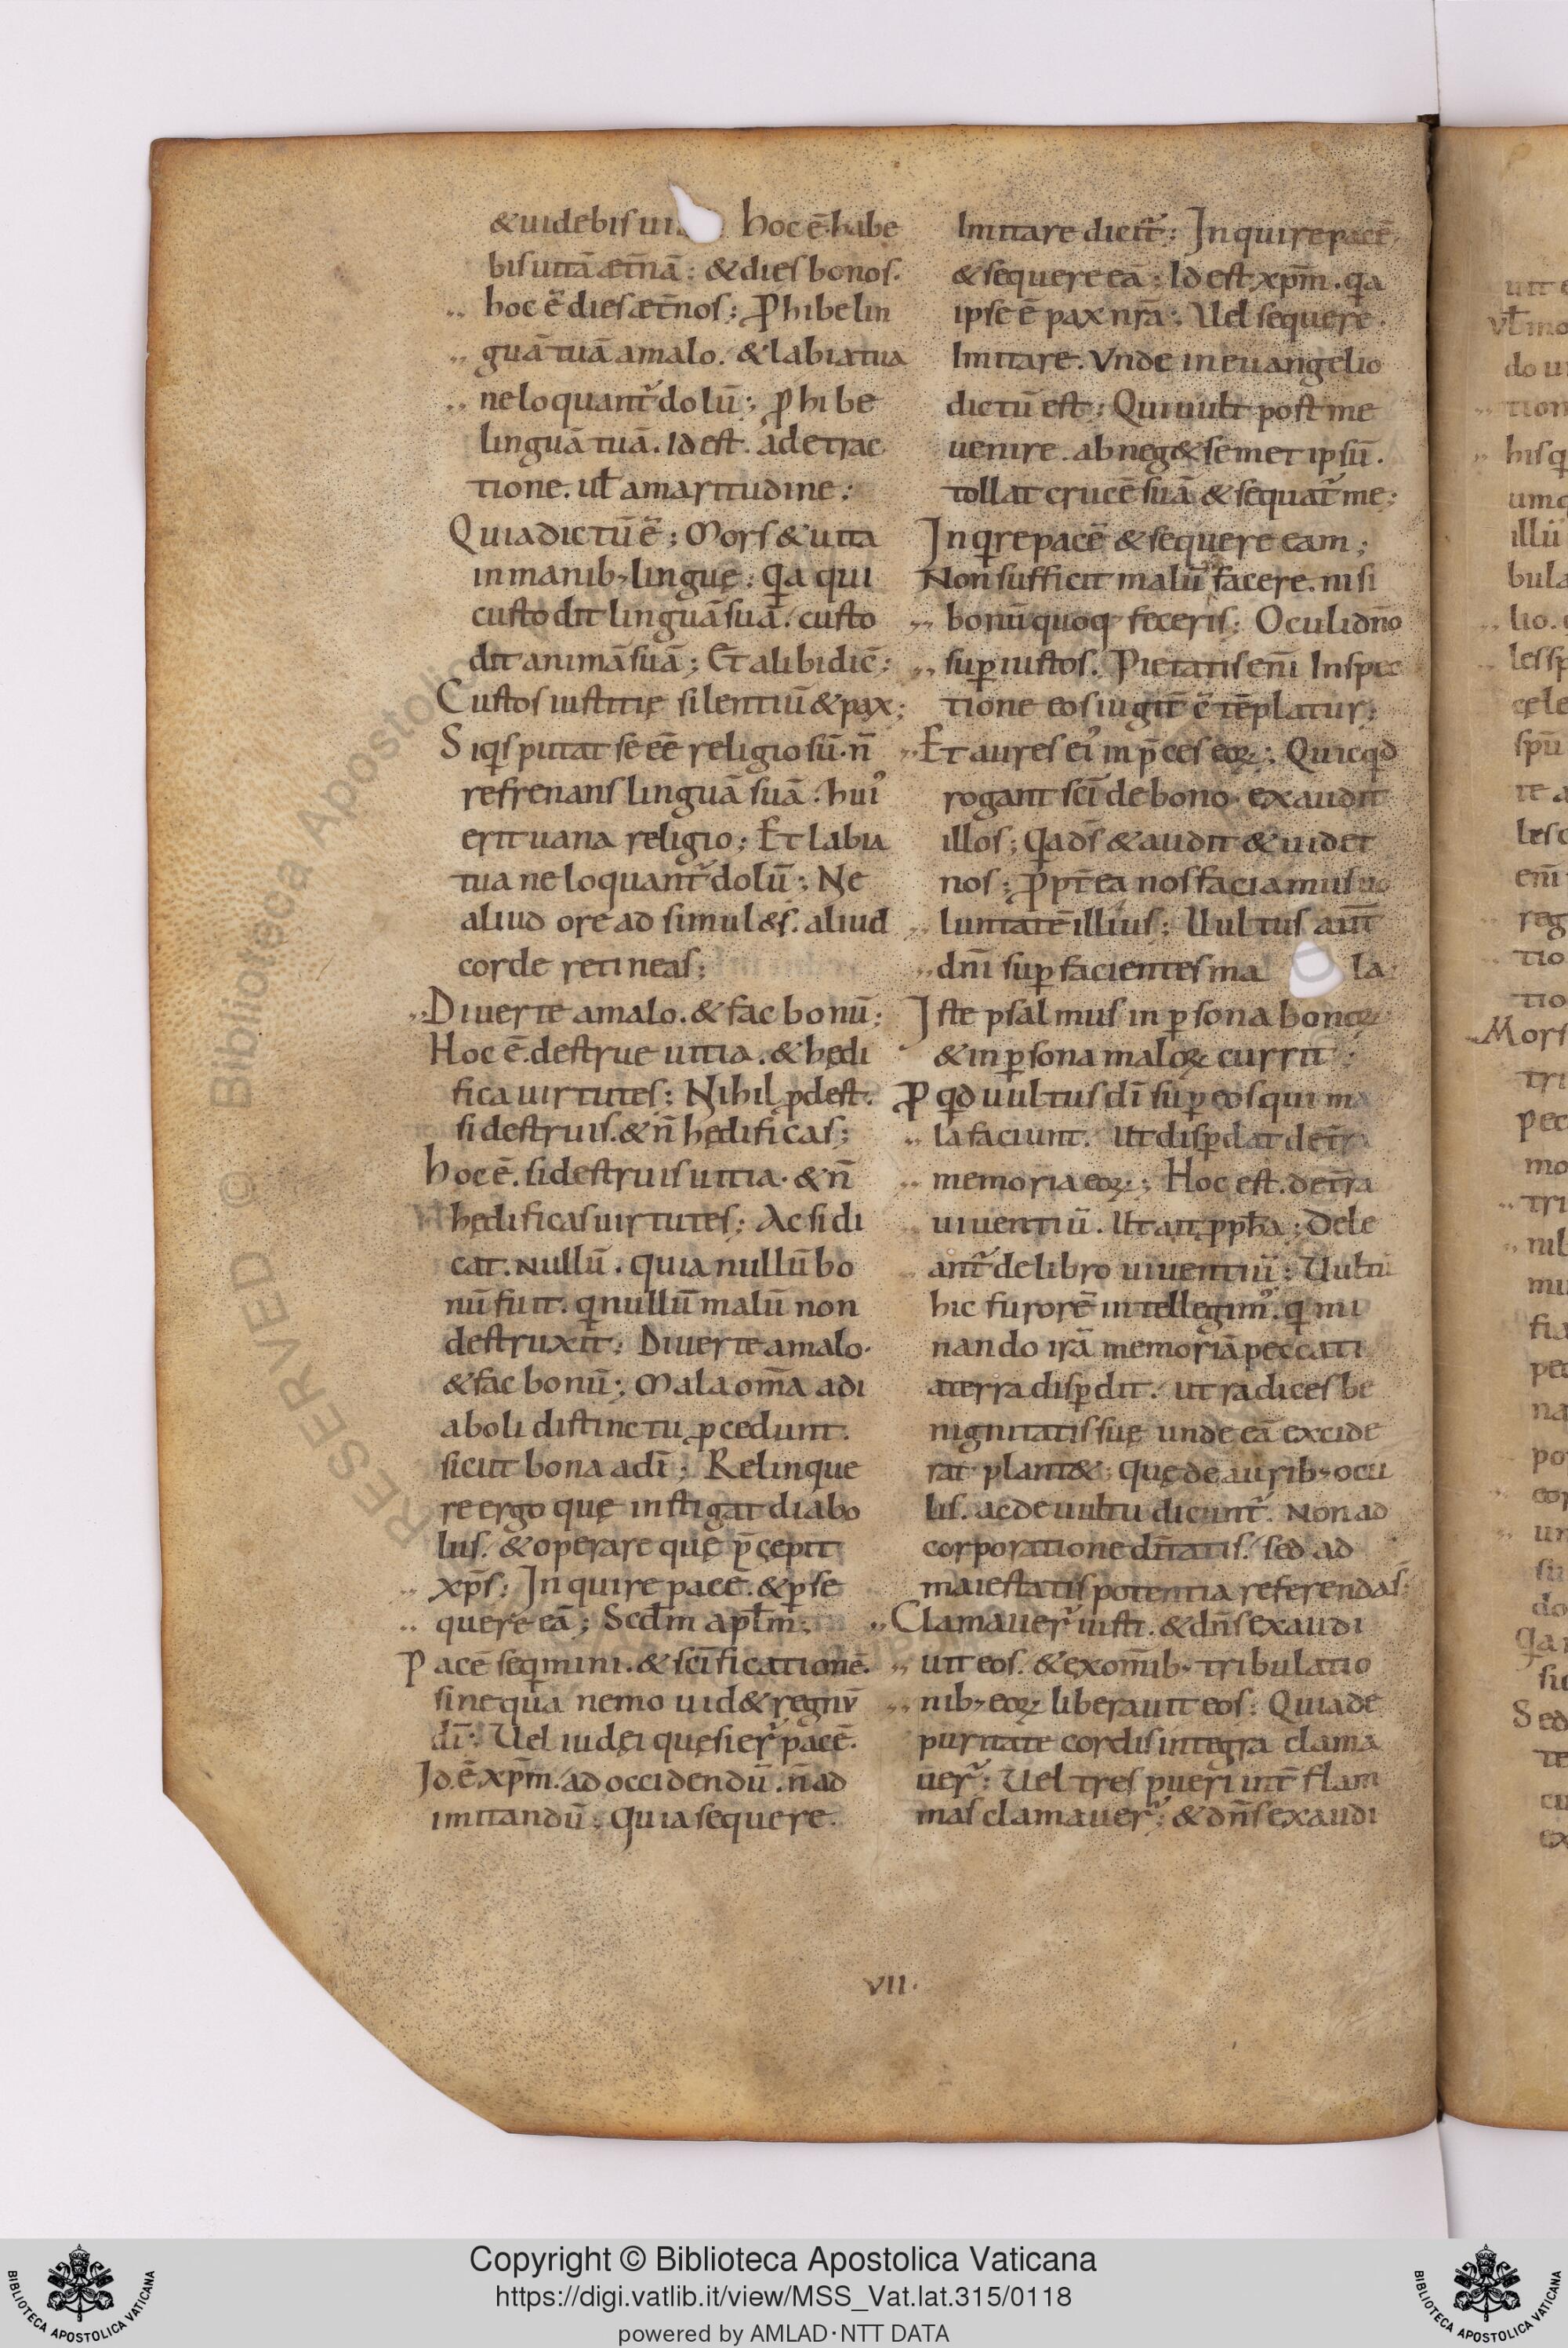 &uidebis ui Hoc ē. habe
bis uitā ætn̄ā: & dies bonos.
hoc ē dies ætn̄os; Ꝓhibe lin
guā tuā a malo. & labia tua
ne loquant᷑ dolū; ꝓhibe
linguā tuā. Id est. a detrac
tione. ul̄ amaritudine;
Quia dictū ē; Mors & uita
in manib; linguę: Qa qui
custodit linguā suā. custo
dit animā suā; Et alibi dic̄;
Custos iustitię silentiū & pax;
Siqis putat se eē religiosū. n̄
refrenans linguā suā. hui᾽
erit uana religio; Et labia
tua ne loquant᷑ dolū; Ne
aliud ore ad simul&s. aliud
corde retineas;
Diuerte a malo. & fac bonū;
Hoc ē. destrue uitia. & hędi
fica uirtutes; Nihil ꝓdest.
si destruis. & n̄ hędificas;
Hoc ē. si destruis uitia. & n̄
hędificas uirtutes; Ac si di
cat. Nullū. quia nullū bo
nū fuit. q nullū malū non
destruxit; Diuerte a malo.
& fac bonū; Mala om̄a a di
aboli distinctu ꝓcedunt.
sicut bona a dī; Relinque
re ergo quę instigat diabo
lus. & operare quę p̄cepit
xp̄s; Inquire pacē. & ꝑse
quere eā; Scd̄m apl̄m;
Pacē seqmini. & scīficationē.
sine qua nemo uid& regnū
dī; Uel iudęi quęsier᷑ pacē.
Id. ē. xp̄m. ad occidendū. n̄ ad
imitandū; Quia sequere.
Imitare dicit᷑; Inquire pacē,
& sequere eā; Id est xp̄m. qa
ipse ē pax nr̄a; Uel sequere.
Imitare. Vnde in euangelio
dictū est; Qui uult post me
uenire. abneg& semet ipsū.
tollat crucē suā & sequat᷑ me;
Inqre pacē & sequere eam;
Non sufficit malū facere. nisi
bonū quoq feceris; Oculi dn̄o
suꝑ iustos. Pietatis enī Inspec
tione eos iugit̄ ē tēplatur;
Et aures ei᾽ in p̄ces eoꝝ; Quicqd
rogant scī de bono. exaudit
illos; Qa ds̄ & audit & uidet
nos; ꝓpt̄ea nos faciamus uo
luntatē illius; Uultus aūt
dn̄i suꝑ facientes ma la.
Iste psalmus in ꝑsona bonoꝝ
& in ꝑsona maloꝝ currit;
Ꝓ qd uultus dī suꝑ eos qui ma
la faciunt. Ut disꝑdat de tr̄a
memoria eoꝝ; Hoc est. de tr̄a
uiuentiū. Ut ait ꝓph̄a; Dele
ant᷑ de libro uiuentiū; Uultū
hic furorē intellegim᾽. q mi
nando irā memoriā peccati
a terra disꝑdit. ut radices be
nignitatis suę unde eā excide
rat plant&; quę de aurib; ocu
lis. ac de uultu dicunt᷑. Non ad
corporatione dn̄tatis. sed ad
maiestatis potentia referendas;
Clamauer᷑ iusti. & dn̄s exaudi
uit eos. & ex om̄ib; tribulatio
nib; eoꝝ liberauit eos; Quia de
puritate cordis integra clama
uer᷑; Uel tres pueri int̄ flam
mas clamauer᷑; & dn̄s exaudi
VII.
Copyright © Biblioteca Apostolica Vaticana
https://digi.vatlib.it/view/MSS_Vat.lat.315/0118
powered by AMLAD·NTT DATA